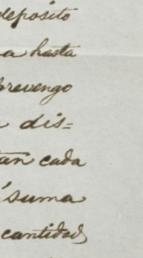 deposito
a hasta
prevengo
dis=
tan cada
suma
cantidad